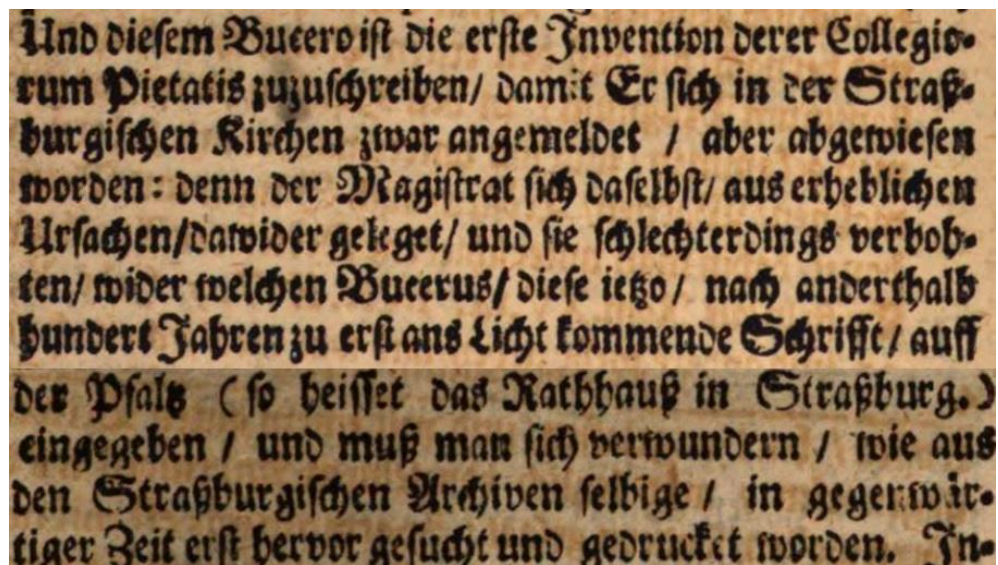 Und diesem Bucero ist die erste Invention derer Collegio-
rum Pietatis zuzuschreiben/ damit Er sich in der Straß-
burgischen Kirchen zwar angemeldet / aber abgewiesen
worden: denn der Magistrat sich daselbst/ aus erheblichen
Ursachen/dawider geleget/ und sie schlechterdings verboh-
ten/ wider welchen Bucerus/ diese ietzo/ nach anderthalb
hundert Jahren zu erst ans Licht kommende Schrifft/ auff
der Pfaltz (so heisset das Rathhauß in Straßburg.)
eingegeben / und muß man sich verwundern / wie aus
den Straßburgischen Archiven selbige / in gegenwär-
tiger Zeit erst hervor gesucht und gedrucket worden. In-